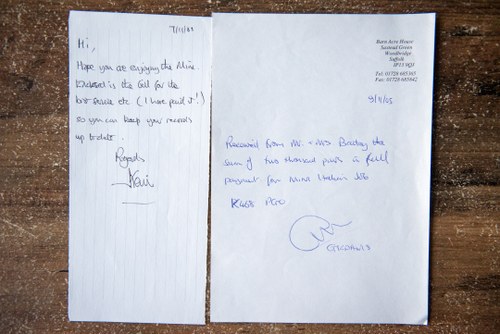 7/11/03
Hi,
Hope you are enjoying the Mini
Enclosed is the bill for the
last service etc (I have paid it!)
so you can keep your records
up to date.
Regards
Barn Acre House
Saxtead Green
Woodbridge
Suffolk
IP13 9QJ
Tel: 01728 685365
Fax: 01728 685442
9/11/03
Received from Mr + Mrs the
sum of two thousand pounds in full
payment for Mini